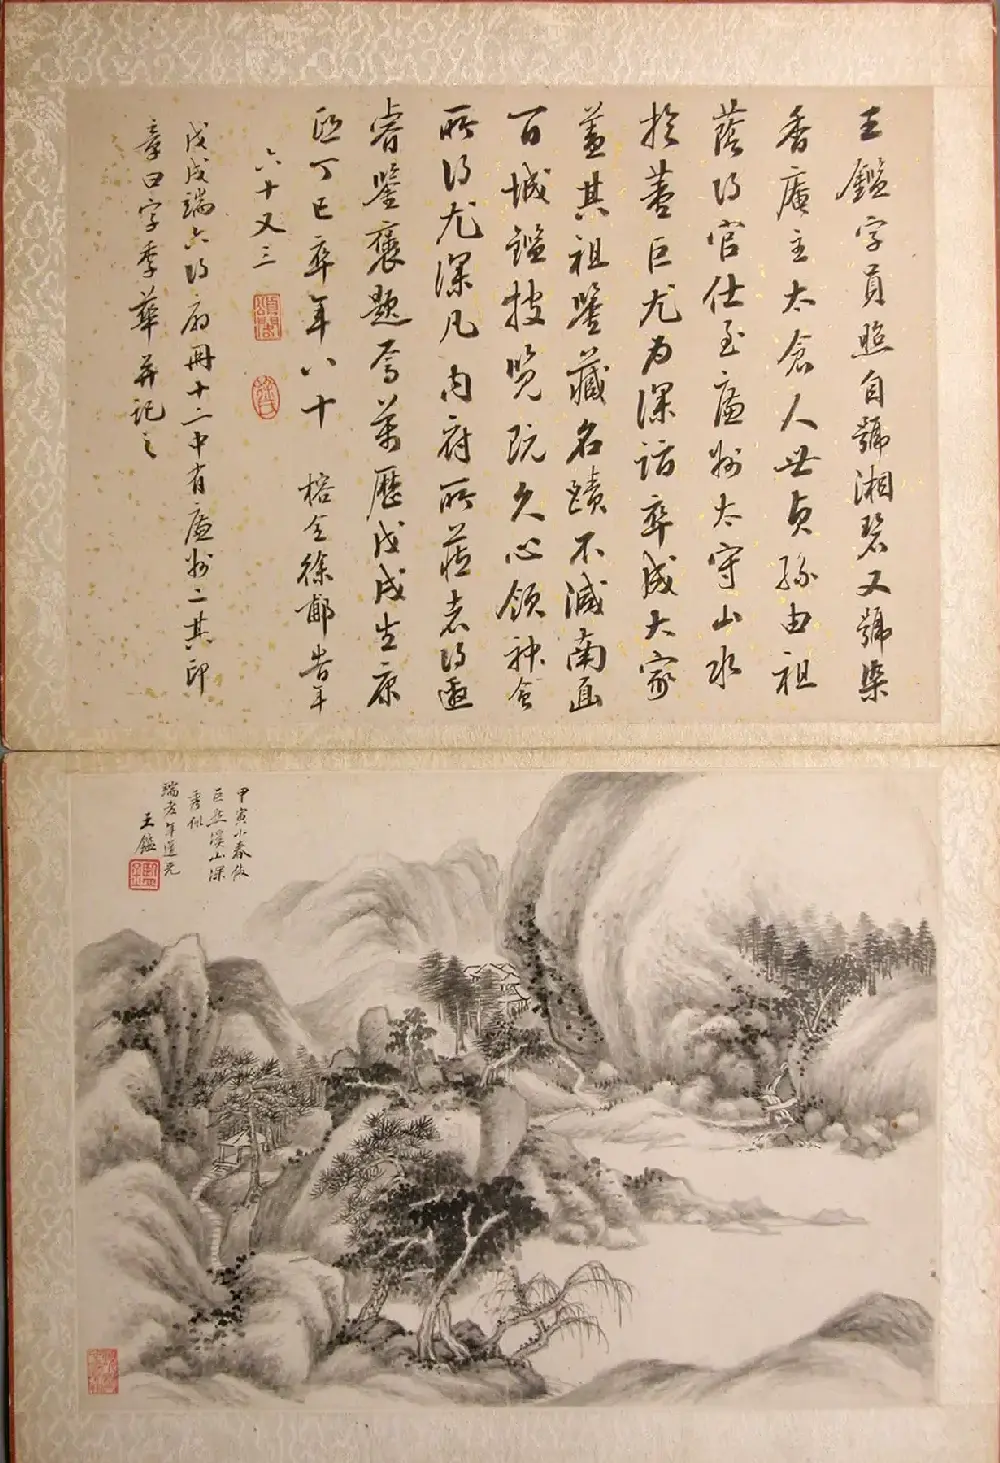 王鑑字員照自號湘碧又號染
香庵主太倉人世貞孫由祖
蔭得官仕至廉州太守山水
於董巨尤为深詣卒成大家
蓋其祖鑒藏名蹟不減南面
百城鑑披覽既久心領神會
所得尤深凡內府所藏老得邀
睿鑒褒題焉萬歷戊戌生康
熙丁巳卒年八十 榕全徐郙告年
六十又三
頌閣
徐氏
戊戌端六得扇冊十二中有廉州二其印
章曰字季華并記之
甲寅小春倣
巨然溪山深
秀似
瑞老年道兄
王鑑